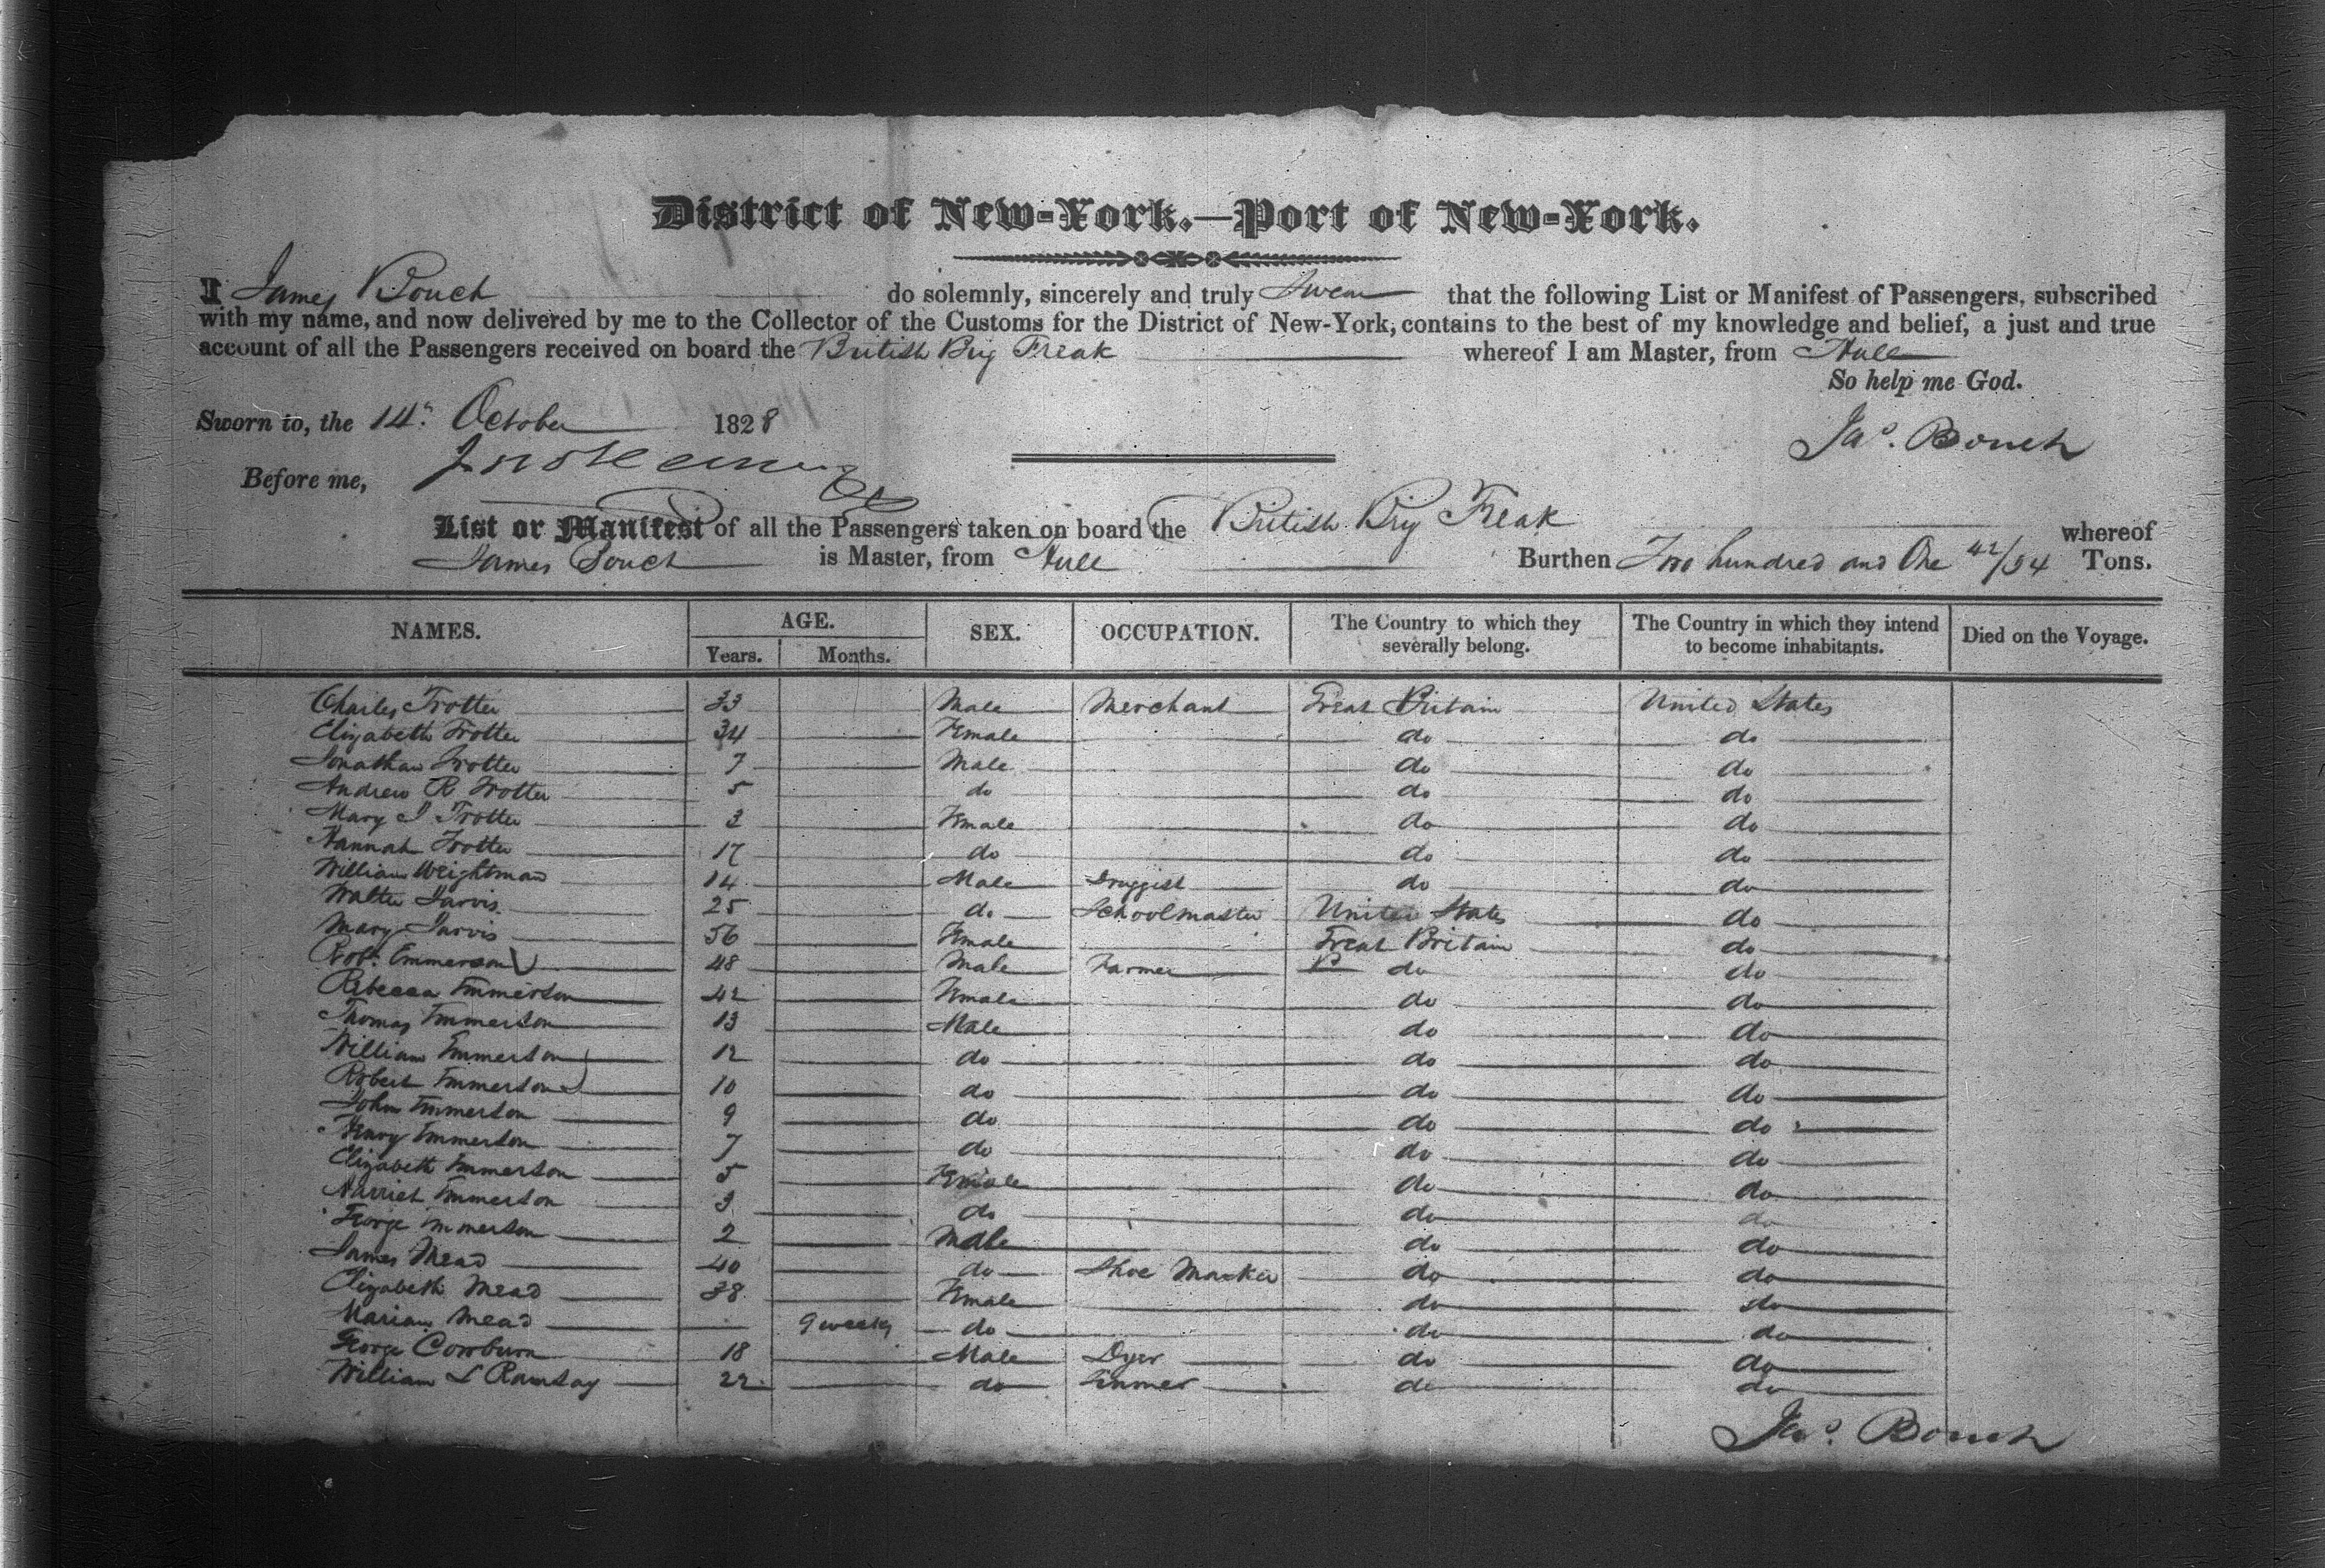 District of New-York.—Port of New-York.
I James Bouch do solemnly, sincerely and truly Swear that the following List or Manifest of Passengers, subscribed
with my name, and now delivered by me to the Collector of the Customs for the District of New-York, contains to the best of my knowledge and belief, a just and true
account of all the Passengers received on board the British Brig Freak whereof I am Master, from Hull
So help me God.
Sworn to, the 14th October 1828
Jas. Bouch
Before me,
List or Manifest of all the Passengers taken on board the British Brig Freak whereof
James Bouch is Master, from Hull Burthen Two hundred and One 42/94 Tons.
NAMES. AGE. SEX. OCCUPATION. The Country to which they severally belong. The Country in which they intend to become inhabitants. Died on the Voyage.
Years. Months.
Charles Trotter 33 Male Merchant Great Britain United States
Elizabeth Trotter 34 Female do do
Jonathan Trotter 7 Male do do
Andrew R Trotter 5 do do do
Mary J Trotter 3 Female do do
Hannah Trotter 17 do do do
William Weightman 14 Male Druggist do do
Walter Jarvis 25 do Schoolmaster United States do
Mary Jarvis 56 Female Great Britain do
Robt. Emmerson 48 Male Farmer do do
Rebecca Emmerson 42 Female do do
Thomas Emmerson 13 Male do do
William Emmerson 12 do do do
Robert Emmerson 10 do do do
John Emmerson 9 do do do
Henry Emmerson 7 do do do
Elizabeth Emmerson 5 Female do do
Harriet Emmerson 3 do do do
George Emmerson 2 Male do do
James Mead 40 do Shoe Macker do do
Elizabeth Mead 38 Female do do
Marian Mead 9 weeks do do do
George Cowburn 18 Male Dyer do do
William L Ramsay 22 do do do
Jas. Bouch